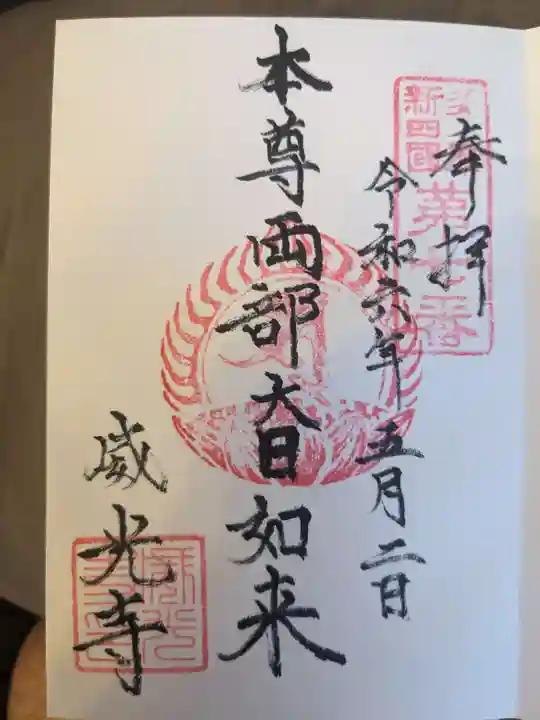 奉拝
令和六年五月二日
本尊両部大日如来
威光寺
多
新四國
第七番
威光
寺